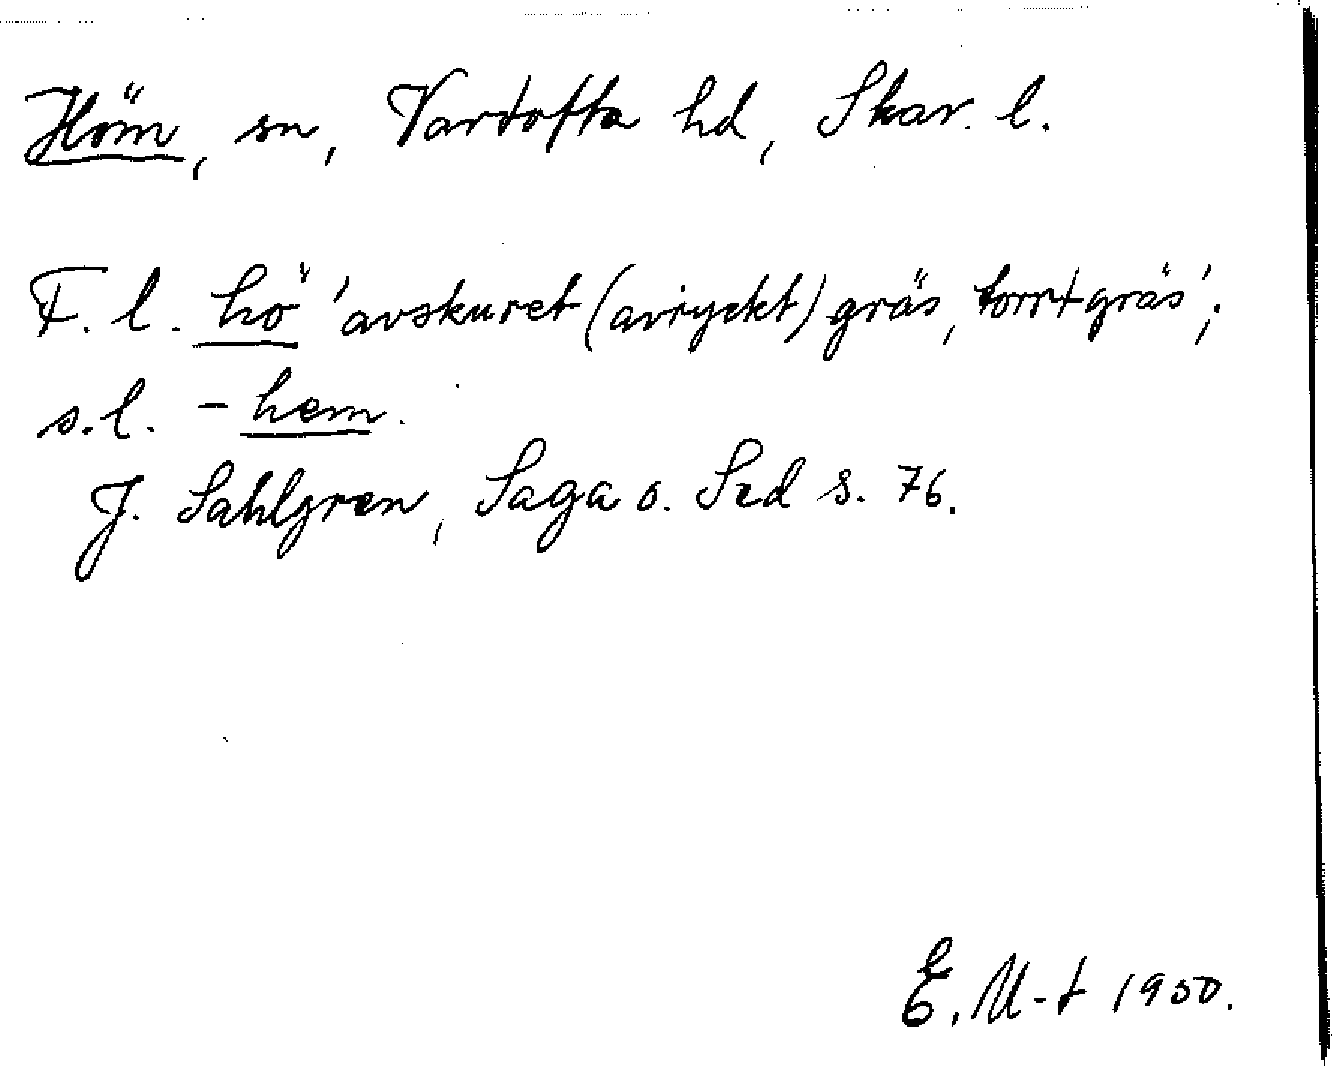 Höm, sn, Vartofta hd, Skar. l.
F. l. hö 'avskuret (avryckt) gräs, torrt gräs';
s.l. -hem.
J. Sahlgren, Saga o. Sed s. 76.
E. M-t 1950.